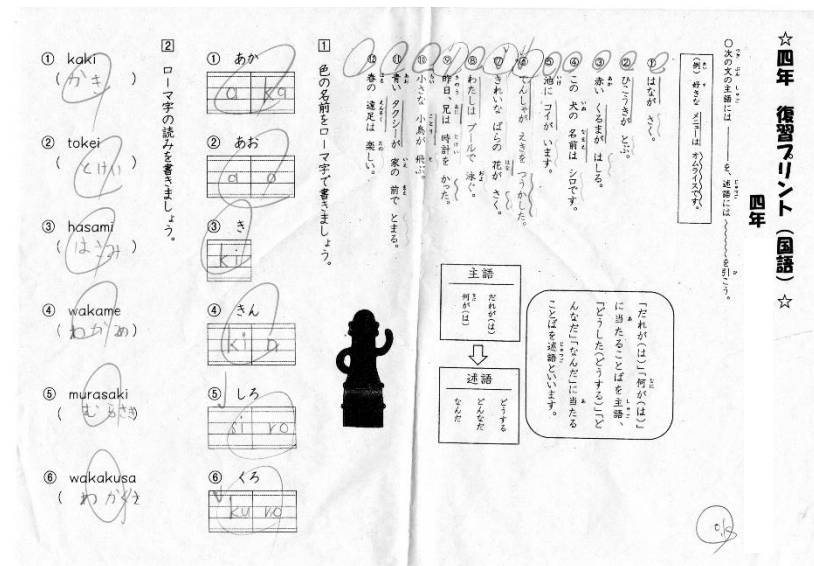 ☆四年 復習プリント（国語）☆
四年
○次の文の主語には――を、述語には〜〜〜を引こう。
（例）好きな メニューは オムライスです。
① はなが さく。
② ひこうきが とぶ。
③ 赤い くるまが はしる。
④ この 犬の 名前は シロです。
⑤ 池に コイが います。
⑥ でんしゃが えきを つうかした。
⑦ きれいな ばらの 花が さく。
⑧ わたしは プールで 泳ぐ。
⑨ 昨日 兄は 時計を かった。
⑩ 小さな 小鳥が 飛ぶ。
⑪ 青い タクシーが 家の 前で とまる。
⑫ 春の 遠足は 楽しい。
「だれが（は）」「何が（は）」
に当たることばを主語、
「どうした（どうする）」「ど
んなだ」「なんだ」に当たる
ことばを述語といいます。
主語
だれが（は）
何が（は）
述語
どうする
どんなだ
なんだ
1 色の名前をローマ字で書きましょう。
① あか
a ka
② あお
a o
③ き
ki
④ きん
ki n
⑤ しろ
si ro
⑥ くろ
ku ro
2 ローマ字の読みを書きましょう。
① kaki
（かき）
② tokei
（とけい）
③ hasami
（はさみ）
④ wakame
（わかめ）
⑤ murasaki
（むらさき）
⑥ wakakusa
（わかくさ）